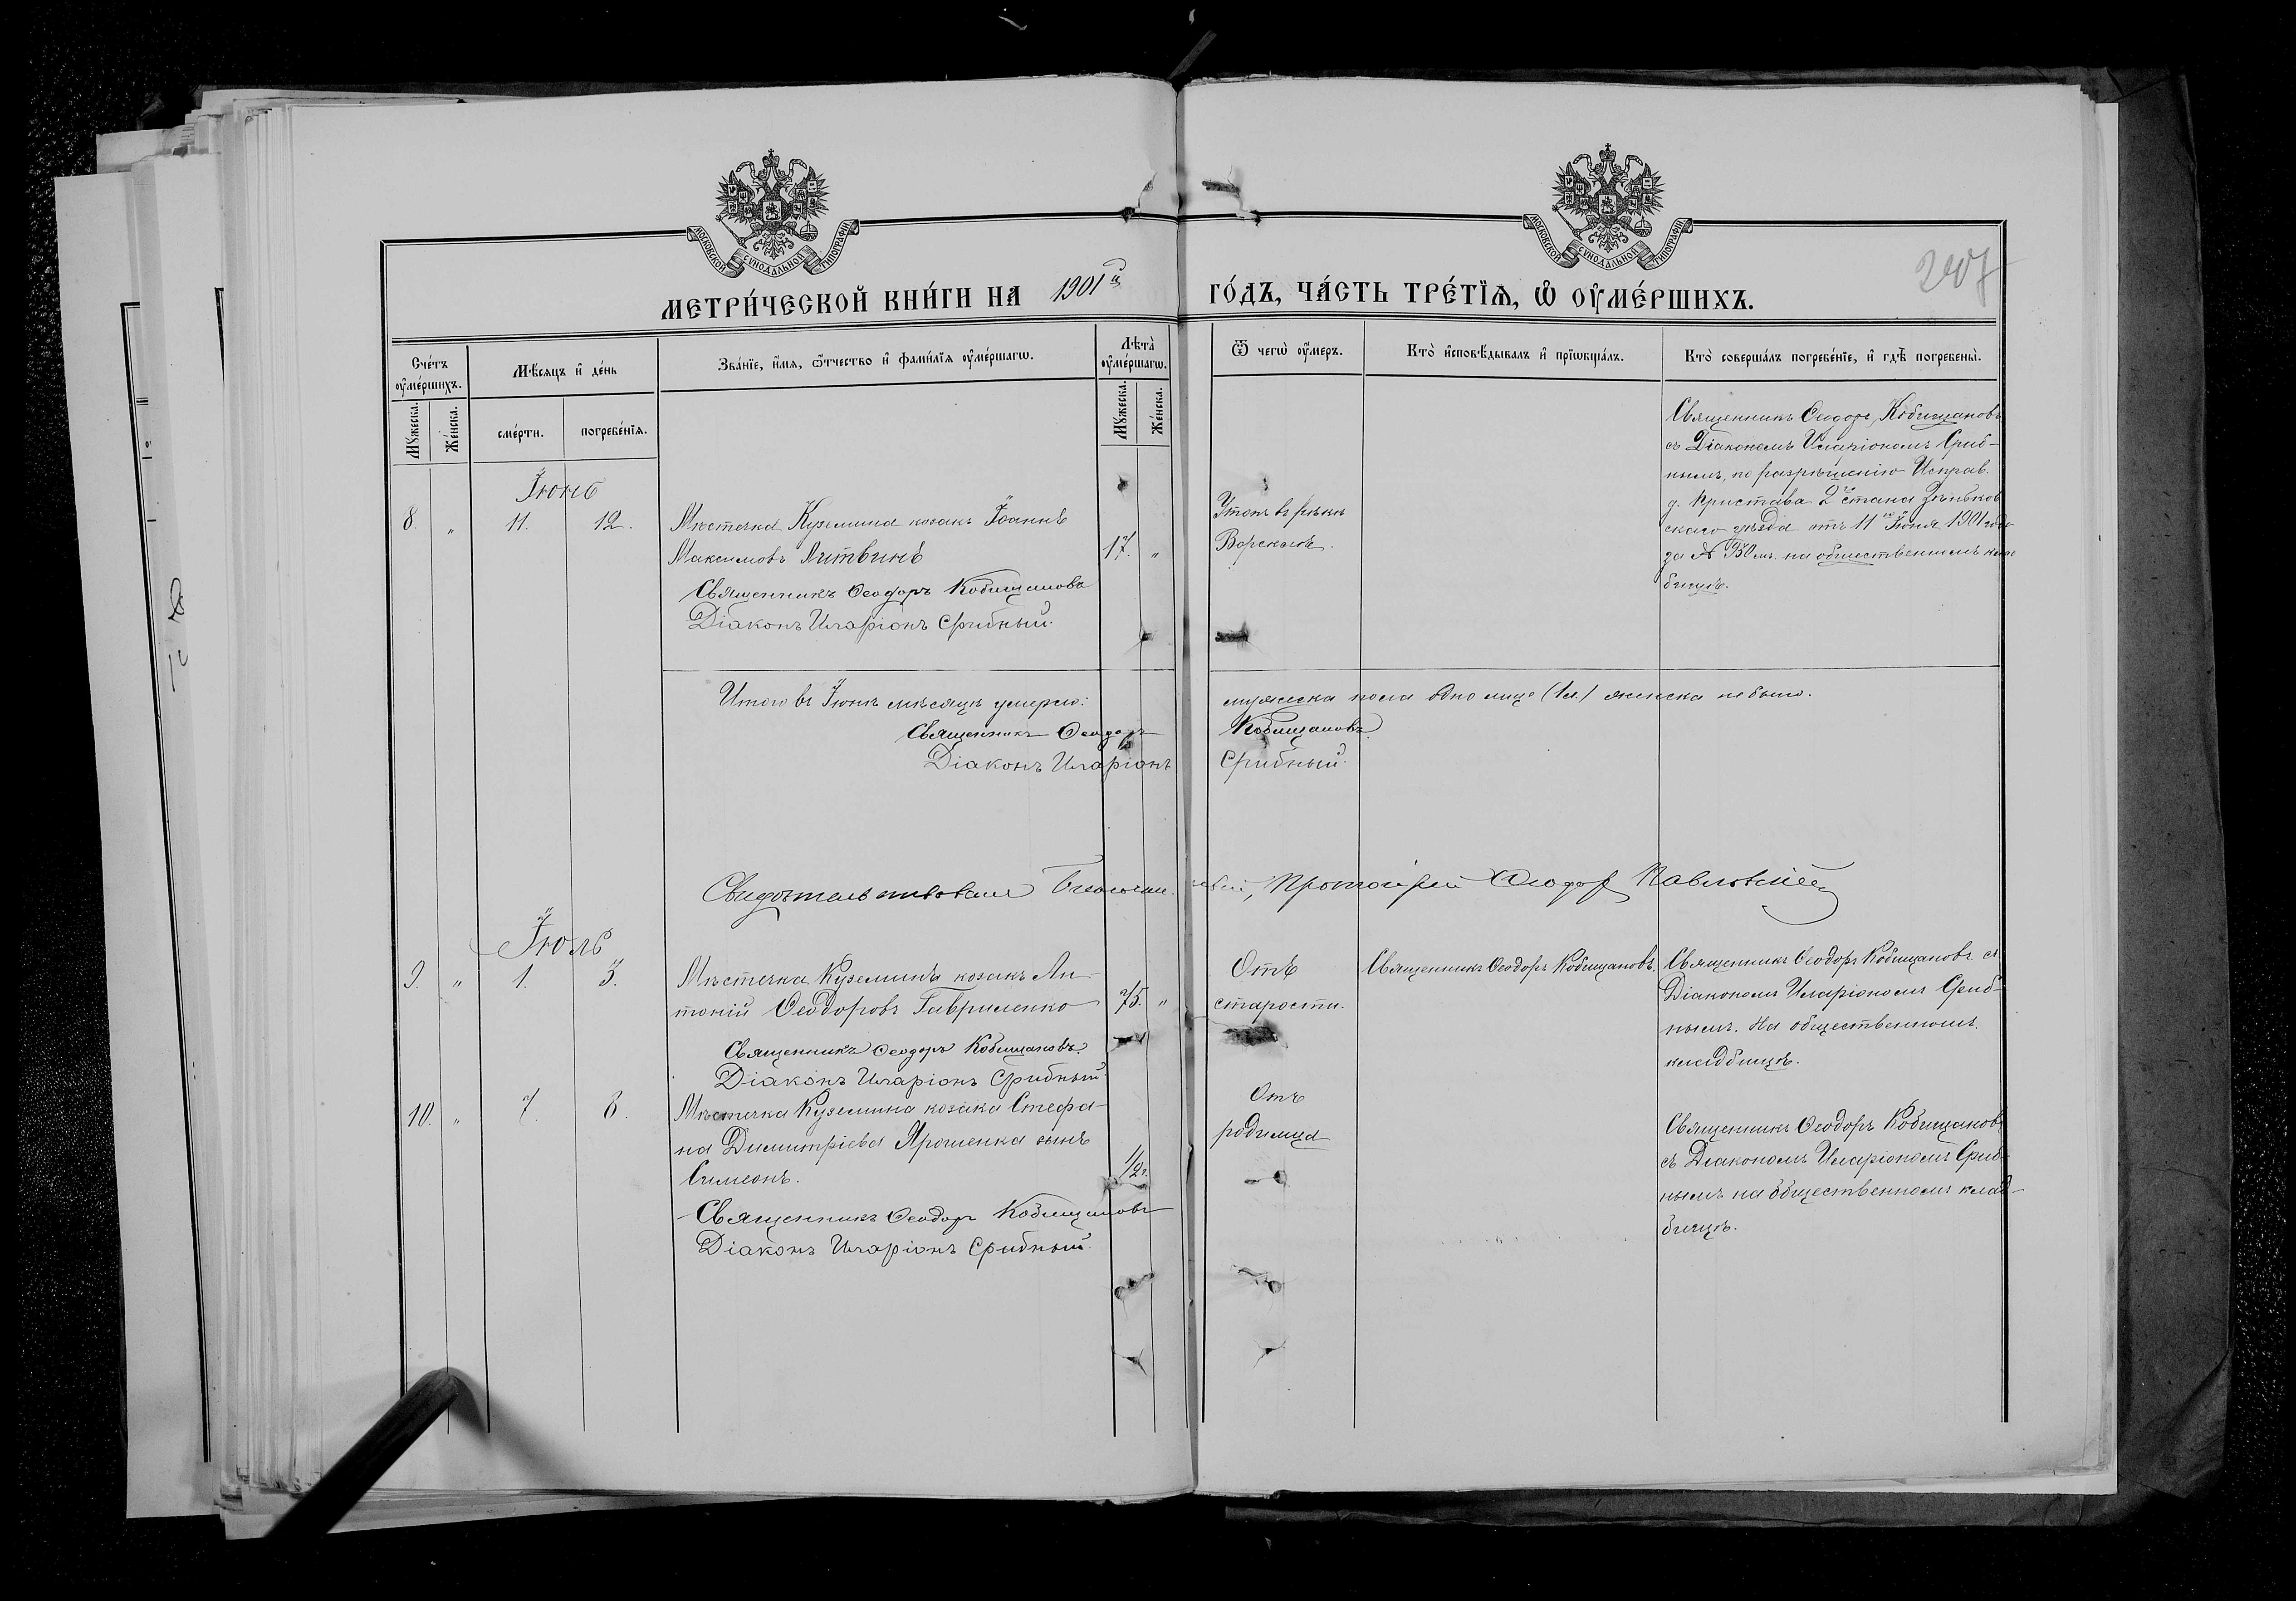 МОСКОВСКОЙ СѴНОДАЛЬНОЙ ТИПОГРАФІИ
МОСКОВСКОЙ СѴНОДАЛЬНОЙ ТИПОГРАФІИ
207
МЕТРИ́ЧЕСКОЙ КНИ́ГИ НА 1901й
ГО́ДЪ, ЧА́СТЬ ТРЕ́ТЇѦ, Ѽ ОУ҆МЕ́РШИХЪ.
Сче́тъ
оу҆ме́ршихъ.
Мꙋжеска.
Же́нска.
Мѣ́сѧцъ и҆ де́нь
сме́рти.
погребе́нїѧ.
Зва́нїе, и҆́мѧ, ѻ҆́тчество и҆ фами́лїѧ оу҆ме́ршагѡ.
Лѣта̀
оу҆ме́ршагѡ.
Мꙋжеска.
Же́нска.
Ѿ чегѡ̀ оу҆́меръ.
Кто̀ и҆сповѣ́дывалъ и҆ прїѡбща́лъ.
Кто̀ соверша́лъ погребе́нїе, и҆ гдѣ̀ погребены̀.
Іюнь
8. „ 11. 12.
Мѣстечка Куземина козакъ Іоаннъ
Максимовъ Литвинъ
17. „
Священникъ Ѳеодоръ Кобищановъ
Діаконъ Иларіонъ Срибный.
Утопъ въ рѣкѣ
Ворсклѣ.
Священникъ Ѳеодоръ Кобищановъ
съ Діакономъ Иларіономъ Сриб-
нымъ, по разрѣшенію Исправ.
д. Пристава 2 стана Зѣньков
скаго уѣзда отъ 11го Іюня 1901 года
за № на общественномъ клад
бищѣ.
Итого въ Іюнѣ мѣсяцѣ умерло:
мужеска пола одно лице (1 л.) женска не было.
Священникъ Ѳеодоръ Кобищановъ
Діаконъ Иларіонъ Срибный.
Свидѣтельствовалъ Протоіерей Ѳеодоръ Павловскій
Іюль
9. „ 1. 3.
Мѣстечка Куземина козакъ Ан-
тоній Ѳеодоровъ Гавриленко
75. „
Священникъ Ѳеодоръ Кобищановъ.
Діаконъ Иларіонъ Срибный.
Отъ
старости.
Священникъ Ѳеодоръ Кобищановъ.
Священникъ Ѳеодоръ Кобищановъ съ
Діакономъ Иларіономъ Сриб-
нымъ. На общественномъ
кладбищѣ.
10. „ 7. 8.
Мѣстечка Куземина козака Стефа-
на Димитріева Ярошенка сынъ
Симеонъ.
1/2 г.
Священникъ Ѳеодоръ Кобищановъ
Діаконъ Иларіонъ Срибный.
Отъ
родимца
Священникъ Ѳеодоръ Кобищановъ
съ Діакономъ Иларіономъ Сриб-
нымъ на общественномъ клад-
бищѣ.